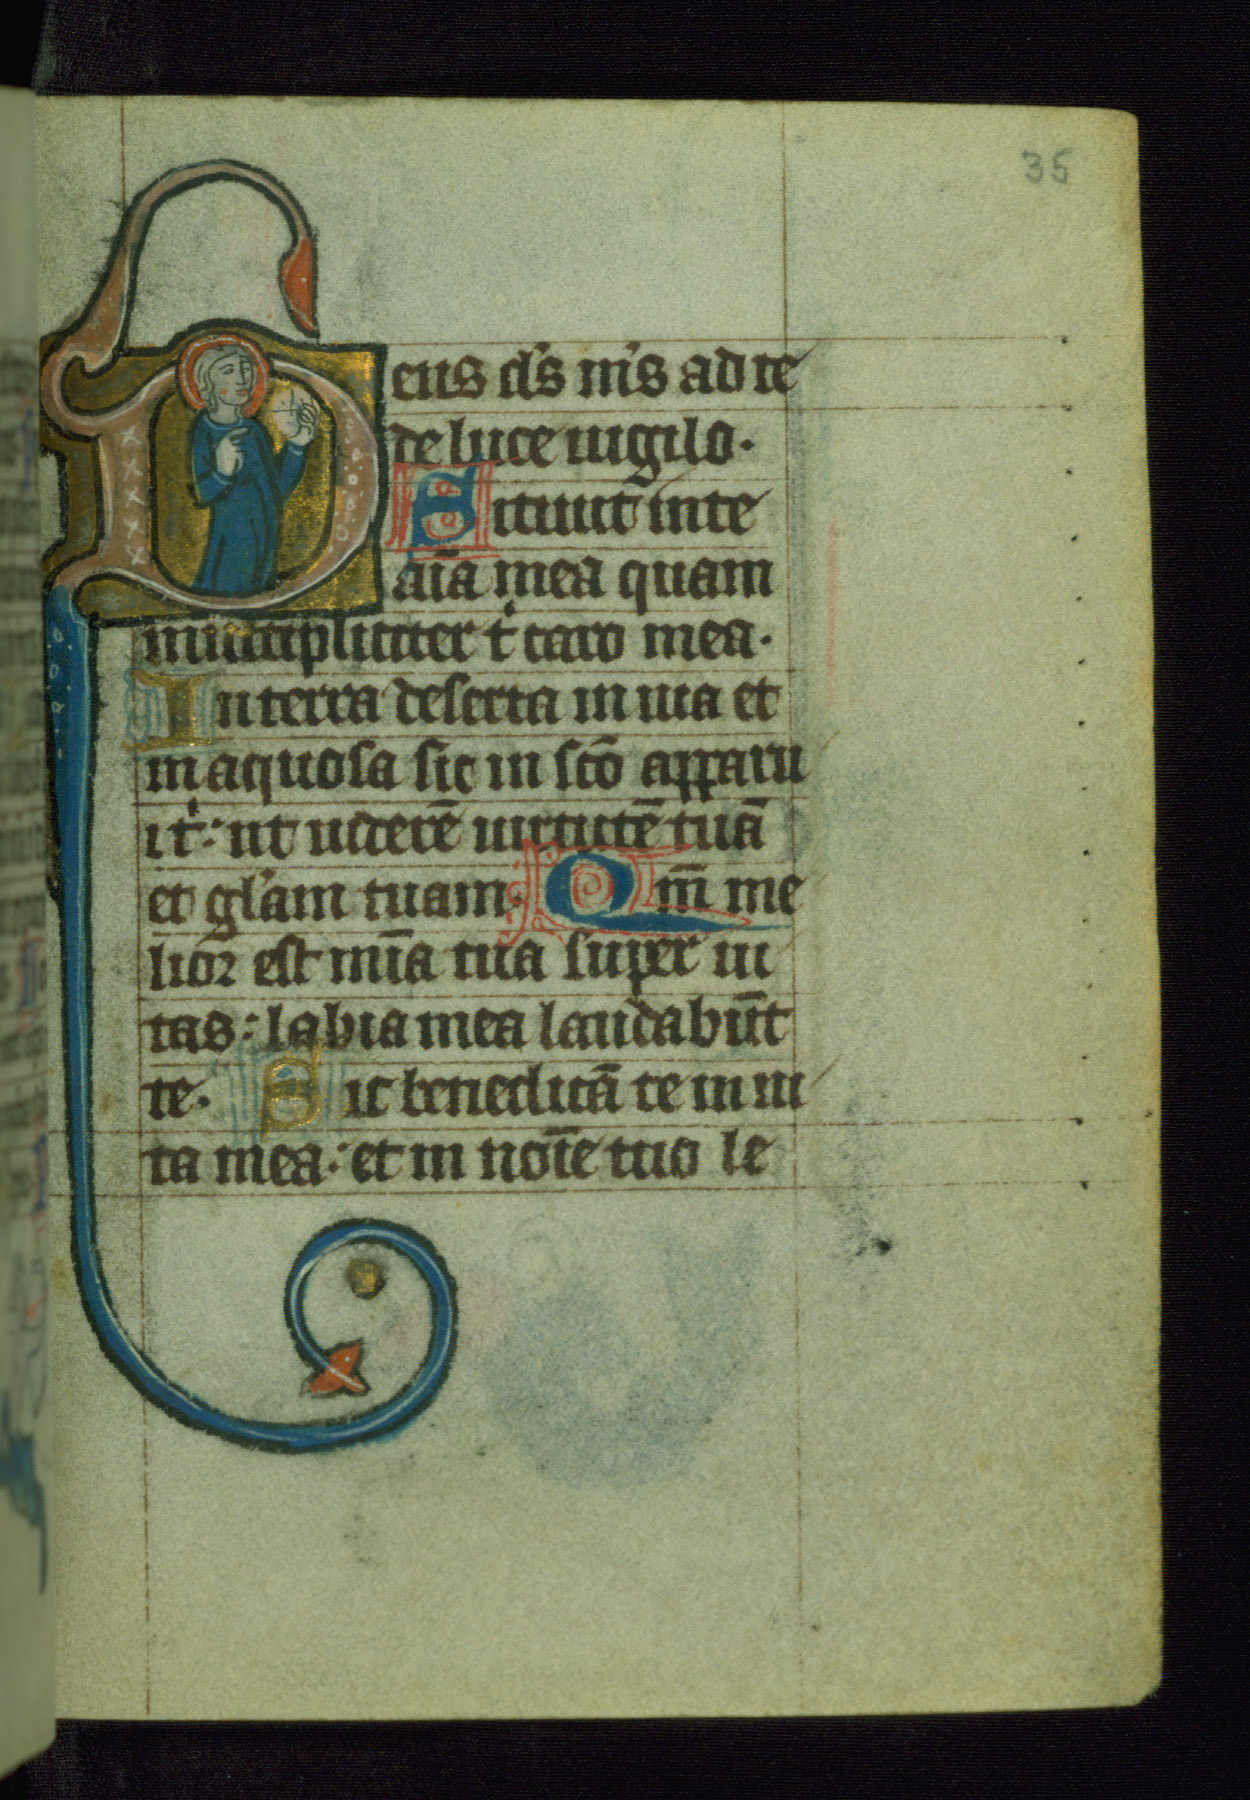 35
Deus ds ms ad te
de luce uigilo.
Sitiuit in te
aīa mea quam
multipliciter t caro mea.
In terra deserta in uia et
in aquosa sic in scō apparu
i t: ut uiderē uirtutē tuā
et glam tuam. Qm̄ me
lior est mīa tua super ui
tas: labia mea laudabūt
te. Sic benedicā te in ui
ta mea: et in noīe tuo le